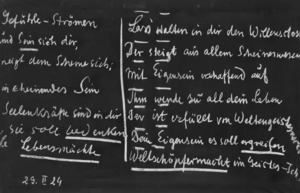 Gefühls-Strömen
und Sein sich dir,
neigt dem Scheine sich;
in scheinendes Sein
Seelenkräfte sind in dir
sie soll bedenken
Lebensmächte
29. II 24
Lass walten in dir den
Der steigt aus allem Scheineswesen
Mit Eigensein schaffend auf
Ihm wende zu all dein Leben
Der ist erfüllt von Weltengeistes
Dein Eigensein es soll ergreifen
Weltschöpfermacht im Geistes-Ich